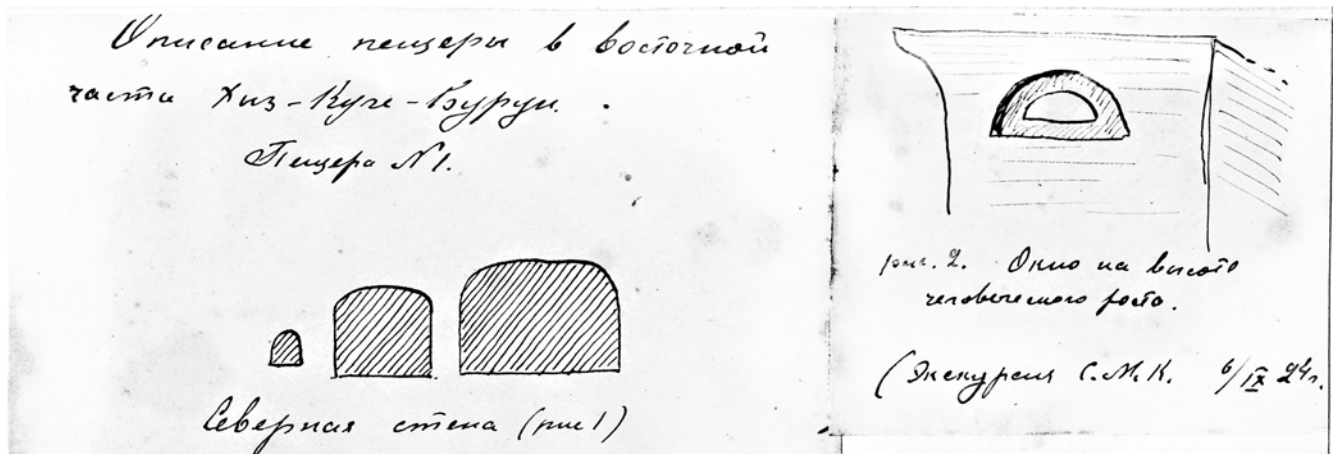 Описание пещеры в восточной
части Хиз-Куле-Бурун.
Пещера №1.
Северная стена (рис 1)
рис. 2. Окно на высоте
человеческого роста.
(Экскурсия С.М.К. 6/IX 24г.